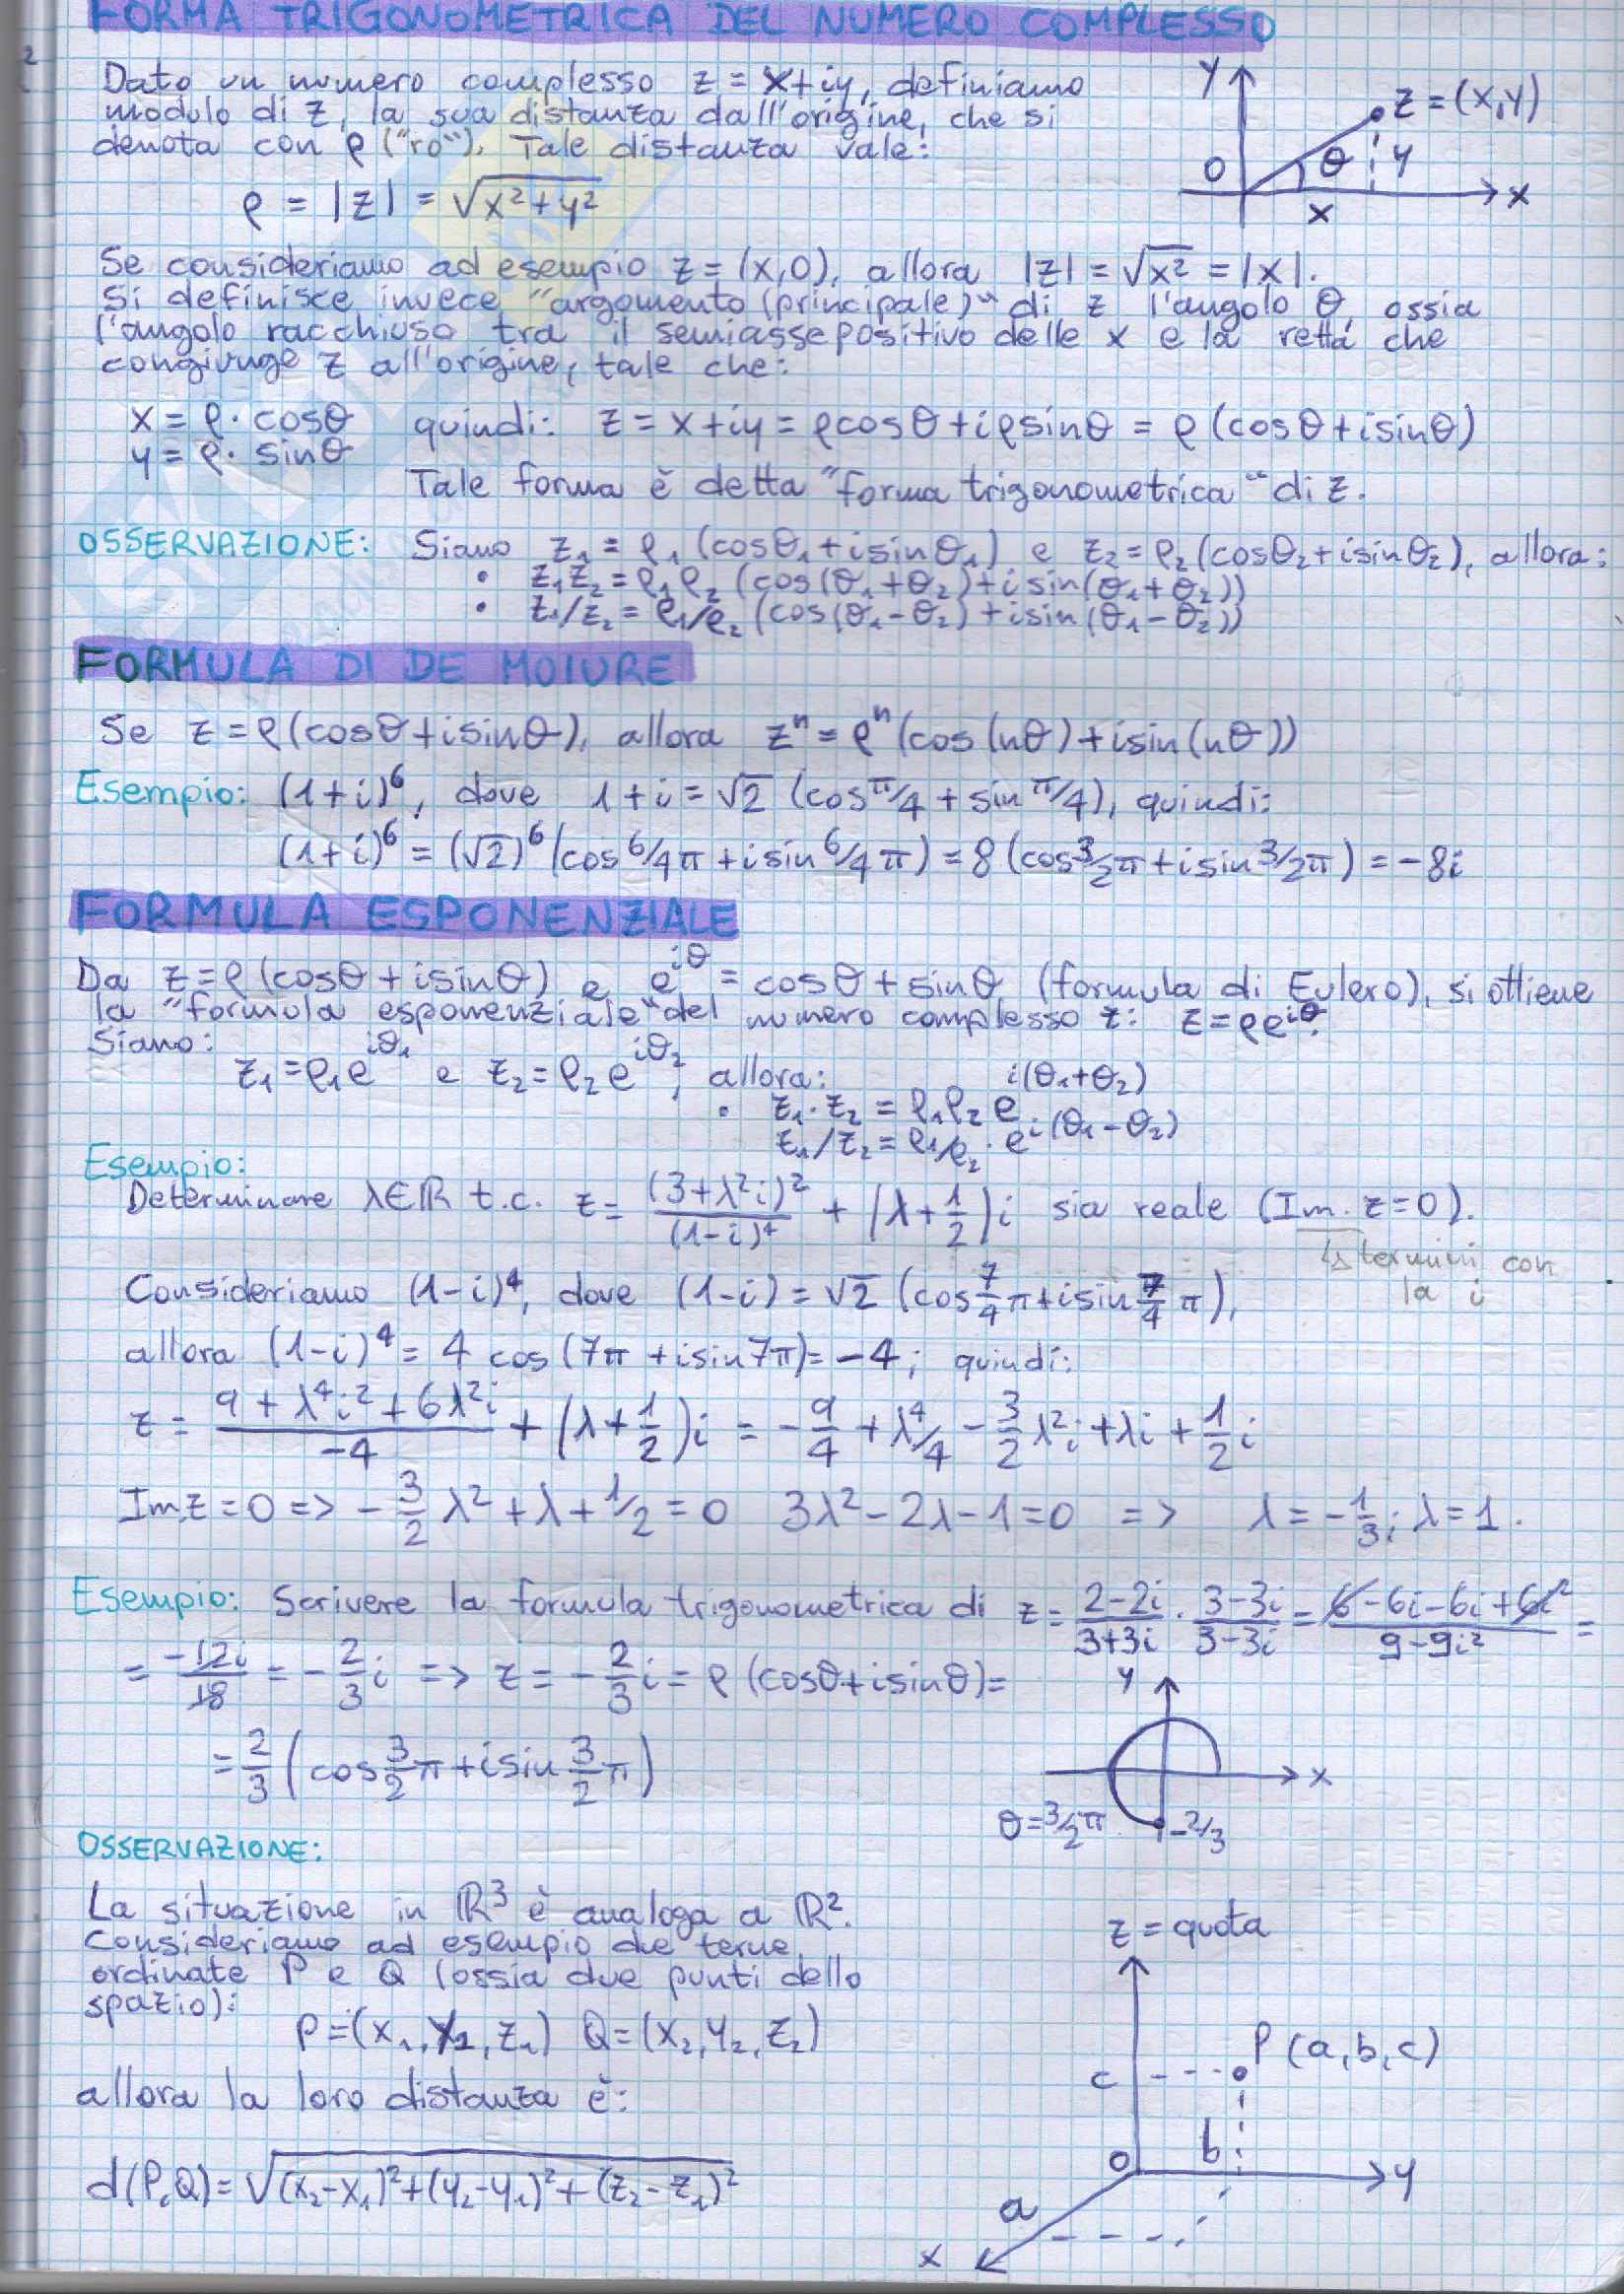 FORMA TRIGONOMETRICA DEL NUMERO COMPLESSO
2
Dato un numero complesso z = x+iy, definiamo
modulo di z, la sua distanza dall'origine, che si
denota con ρ ("ro"). Tale distanza vale:
ρ = |z| = √(x²+y²)
y
z=(x,y)
O
θ
y
x
x
Se consideriamo ad esempio z=(x,0), allora |z| = √x² = |x|.
Si definisce invece "argomento (principale)" di z l'angolo θ, ossia
l'angolo racchiuso tra il semiasse positivo delle x e la retta che
congiunge z all'origine, tale che:
x = ρ · cosθ quindi: z = x+iy = ρcosθ+iρsinθ = ρ (cosθ+isinθ)
y = ρ · sinθ
Tale forma è detta "forma trigonometrica" di z.
OSSERVAZIONE: Siano z₁ = ρ₁ (cosθ₁+isinθ₁) e z₂=ρ₂(cosθ₂+isinθ₂), allora:
• z₁z₂=ρ₁ρ₂ (cos(θ₁+θ₂)+isin(θ₁+θ₂))
• z₁/z₂ = ρ₁/ρ₂ (cos(θ₁-θ₂)+isin(θ₁-θ₂))
FORMULA DI DE MOIURE
Se z=ρ(cosθ+isinθ), allora zⁿ=ρⁿ(cos(nθ)+isin(nθ))
Esempio: (1+i)⁶, dove 1+i=√2 (cosπ/4+sinπ/4), quindi:
(1+i)⁶ = (√2)⁶(cos6/4π+isin6/4π)=8(cos3/2π+isin3/2π) = -8i
FORMULA ESPONENZIALE
Da z=ρ(cosθ+isinθ) e e^iθ = cosθ+sinθ (formula di Eulero), si ottiene
la "formula esponenziale" del numero complesso z: z=ρe^iθ.
Siano:
z₁=ρ₁e^iθ₁ e z₂=ρ₂e^iθ₂, allora:
• z₁·z₂ = ρ₁ρ₂e^i(θ₁+θ₂)
z₁/z₂=ρ₁/ρ₂·e^i(θ₁-θ₂)
Esempio:
Determinare λ∈ℝ t.c. z= (3+λ²i)²/(1-i)⁴ + (λ+1/2)i sia reale (Im. z=0).
↳ termini con
la i
Consideriamo (1-i)⁴, dove (1-i)=√2 (cos7/4π+isin7/4π),
allora (1-i)⁴= 4 cos(7π+isin7π)=-4; quindi:
z= (9+λ⁴i²+6λ²i)/-4 + (λ+1/2)i = -9/4+λ⁴/4-3/2λ²i+λi+1/2i
Imz=0 => -3/2λ²+λ+1/2=0 3λ²-2λ-1=0 => λ=-1/3; λ=1.
Esempio: Scrivere la formula trigonometrica di z= (2-2i)/(3+3i) · (3-3i)/(3-3i) = (6-6i-6i+6i²)/(9-9i²) =
= -12i/18 = -2/3i => z=-2/3i=ρ(cosθ+isinθ)=
= 2/3 (cos3/2π+isin3/2π)
y
x
θ=3/2π
-2/3
OSSERVAZIONE:
La situazione in ℝ³ è analoga a ℝ².
Consideriamo ad esempio due terne
ordinate P e Q (ossia due punti dello
spazio):
P=(x₁,y₁,z₁) Q=(x₂,y₂,z₂)
allora la loro distanza è:
d(P,Q)=√((x₂-x₁)²+(y₂-y₁)²+(z₂-z₁)²)
z=quota
P (a,b,c)
c
O
b
y
a
x